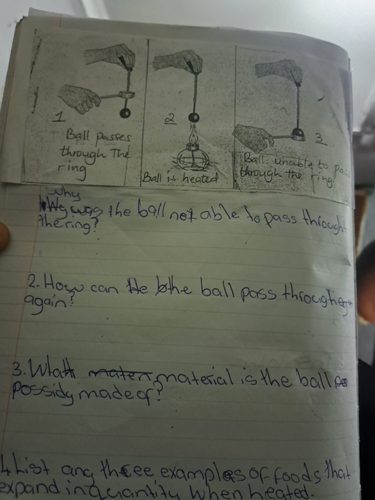 1
Ball passes
through The
ring
2
Ball is heated
3.
Ball unable to pass
through the ring
Why
1. was the ball not able to pass through
the ring?
2. How can the the ball pass through
again?
3. What material is the ball
possibly made of?
4. List any three examples of foods that
expand in quantity when heated